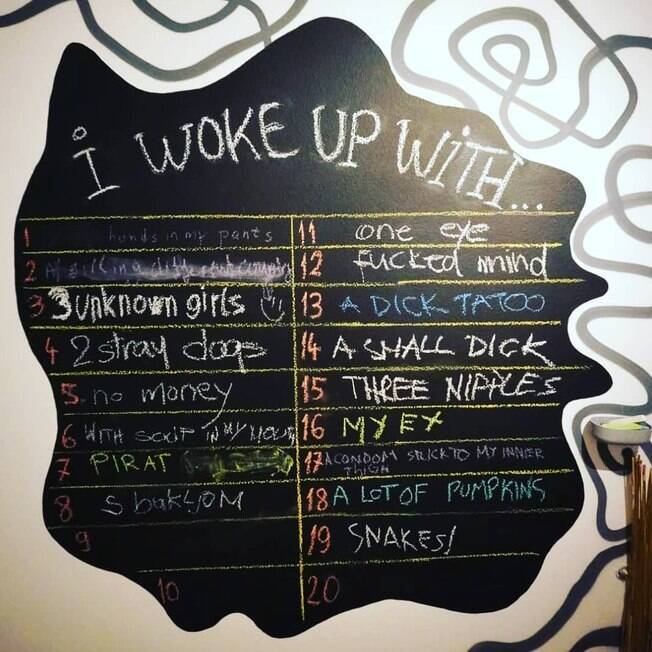 i WOKE UP WiTH...
1 hands in my pants
2 in a different country
3 3 unknown girls
4 2 stray dogs
5. no money
6 WITH SOAP IN MY MOUTH
7 PIRAT
8 S bakljoM
9
10
11 one eye
12 fucked mind
13 A DICK TATOO
14 A SMALL DICK
15 THREE NIPPLES
16 MY EX
17 A CONDOM STICK TO MY INNER
THIGH
18 A LOT OF PUMPKINS
19 SNAKES!
20